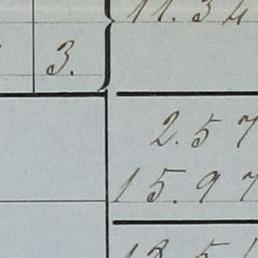 11.34
3.
2.57
15.97